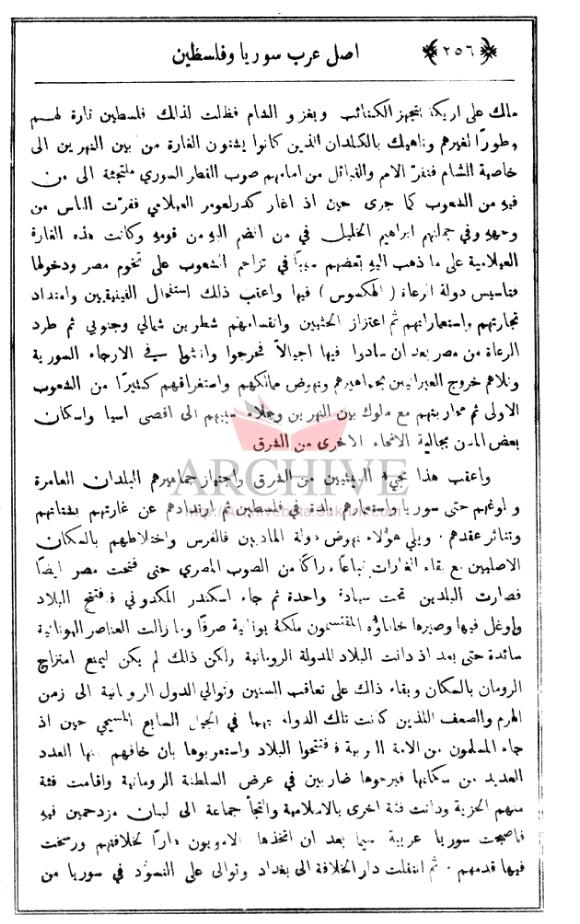 ﴿٢٥٦﴾ اصل عرب سوريا وفلسطين
ملك على اريكة بتجهز الكتائب وبغزو الشام فظلت لذلك فلسطين تارة لهم
وطورًا لغيرهم وناهيك بالكلدان الذين كانوا يشنون الغارة من بين النهرين الى
خاصية الشام فتفرّ الامم والقبائل من امامهم صوب القطر السوري ملتجئة الى من
فيه من الشعوب كما جرى حين اذ اغار كدرلعومر العيلامي ففرّت الناس من
وجهه وفي جملتهم ابراهيم الخليل في من انضم اليه من قومه وكانت هذه الغارة
العيلامية على ما ذهب اليه بعضهم سببًا في تزاحم الشعوب على تخوم مصر ودخولها
فتاسيس دولة الرعاة (الهكسوس) فيها واعقب ذلك استفحال الفينيقيين وامتداد
تجارتهم واستعماراتهم ثم اعتزاز الحثيين وانقسامهم شطرين شمالي وجنوبي ثم طرد
الرعاة من مصر بعد ان سادوا فيها اجيالاً فخرجوا وانبثوا في الارجاء السورية
وتلاهم خروج العبرانيين بجماهيرهم ونهوض ممالكهم واستغراقهم كثيرًا من الشعوب
الاولى ثم محاربتهم مع ملوك بين النهرين وجلاء سبيهم الى اقصى اسيا واسكان
بعض المدن بجالية الانحاء الاخرى من الشرق
ARCHIVE
واعقب هذا مجيء السيثيين من الشرق واجتياز جماهيرهم البلدان العامرة
وبلوغهم حتى سوريا واستعمارهم بلدة في فلسطين ثم ارتدادهم عن غارتهم بشتاتهم
وتناثر عقدهم. ويلي هؤلاء نهوض دولة الماديين فالفرس واختلاطهم بالمكان
الاصليين مع بقاء الغارات تباعًا دراكًا من الصوب المصري حتى فتحت مصر ايضًا
فصارت البلدين تحت سيادة واحدة ثم جاء اسكندر المكدوني ففتح البلاد
واوغل فيها وصيرها خلفاؤه المقتسمون ملكه يونانية صرفًا وما زالت العناصر اليونانية
سائدة حتى بعد اذ دانت البلاد للدولة الرومانية ولكن ذلك لم يكن ليمنع امتزاج
الرومان بالمكان وبقاء ذلك على تعاقب السنين وتوالي الدول الرومانية الى زمن
الهرم والضعف اللذين كانت تلك الدولة بهما في الجيل السابع المسيحي حين اذ
جاء المسلمون من الامة العربية ففتحوا البلاد واستعربوها بان خافهم منها العدد
العديد من سكانها فبرحوا ضاربين في عرض السلطنة الرومانية واقامت فئة
منهم الجزية ودانت فئة اخرى بالاسلامية والتجأ جماعة الى لبنان مزدحمين فيه
فاصبحت سوريا عربية سيما بعد ان اتخذها الامويون دارًا لخلافتهم ورسخت
فيها قدمهم. ثم انتقلت دار الخلافة الى بغداد وتوالى على التسوّد في سوريا من